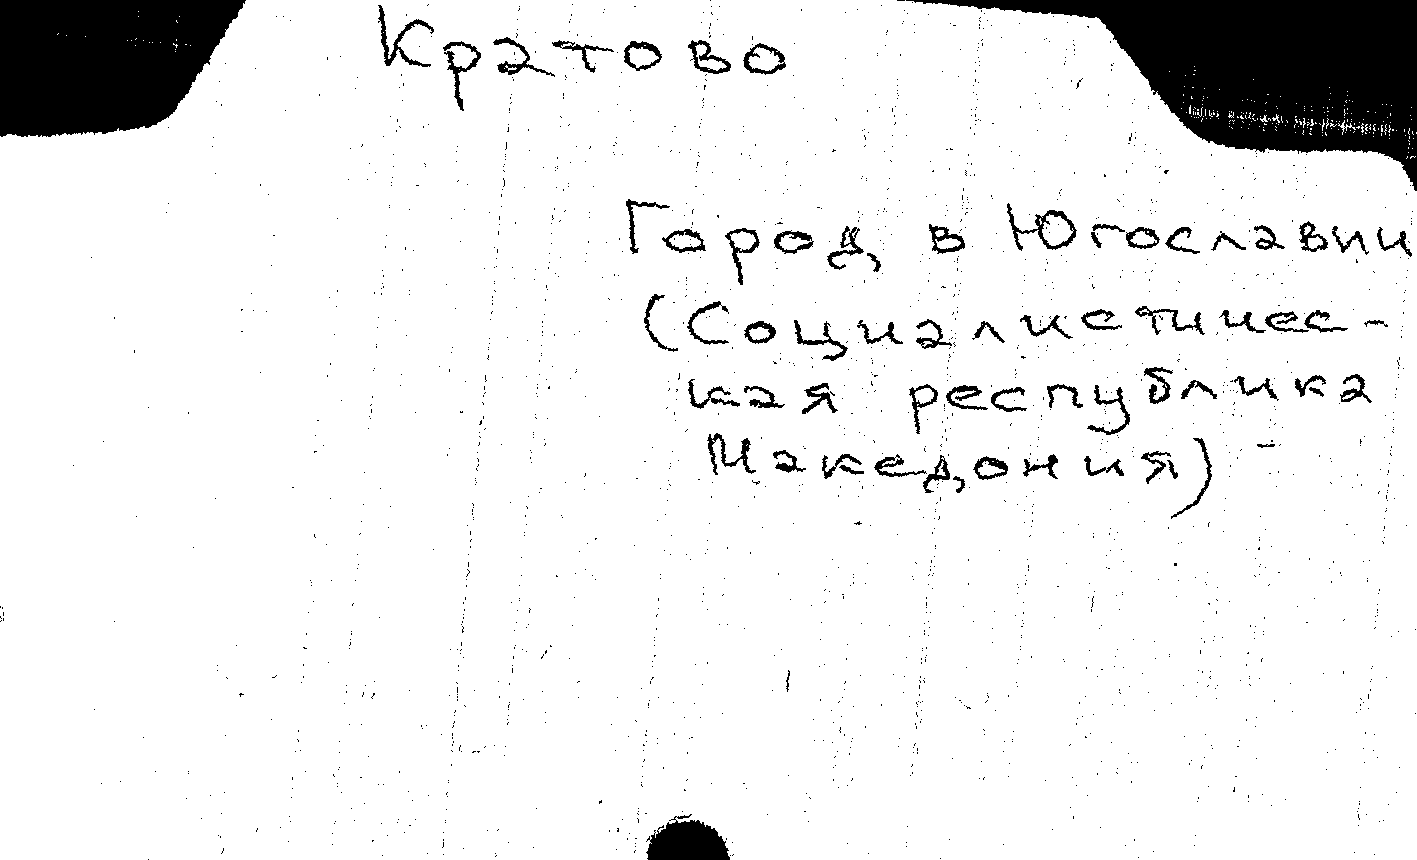 Кратово
Город в Югославии
(Социалистичес-
кая республика
Македония) -